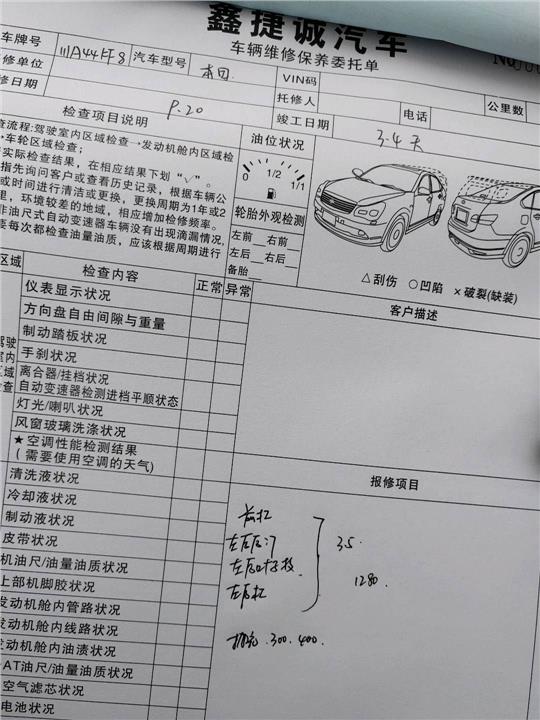 鑫捷诚汽车
车辆维修保养委托单
No
车牌号 A44FF8 汽车型号 本田 VIN码
修单位 托修人 电话 公里数
修日期 P.20 竣工日期 3-4天
检查项目说明 油位状况
查流程:驾驶室内区域检查→发动机舱内区域检
→车轮区域检查;
实际检查结果,在相应结果下划“√”。
指先询问客户或查看历史记录,根据车辆公
或时间进行清洁或更换,更换周期为1年或2
里,环境较差的地域,相应增加检修频率。
非油尺式自动变速器车辆没有出现滴漏情况,
要每次都检查油量油质,应该根据周期进行
0 1/2 1/1
轮胎外观检测
左前__右前
左后__右后
备胎
△刮伤 ○凹陷 ×破裂(缺装)
区域 检查内容 正常 异常
客户描述
仪表显示状况
方向盘自由间隙与重量
制动踏板状况
手刹状况
离合器/挂档状况
自动变速器检测进档平顺状态
灯光/喇叭状况
风窗玻璃洗涤状况
★空调性能检测结果
(需要使用空调的天气)
驾驶
室内
区域
检查
报修项目
清洗液状况
冷却液状况
制动液状况
皮带状况
机油尺/油量油质状况
上部机脚胶状况
发动机舱内管路状况
发动机舱内线路状况
发动机舱内油渍状况
AT油尺/油量油质状况
空气滤芯状况
电池状况
前杠
左后门
35.
左后叶子板
1280.
左后杠
300.400.